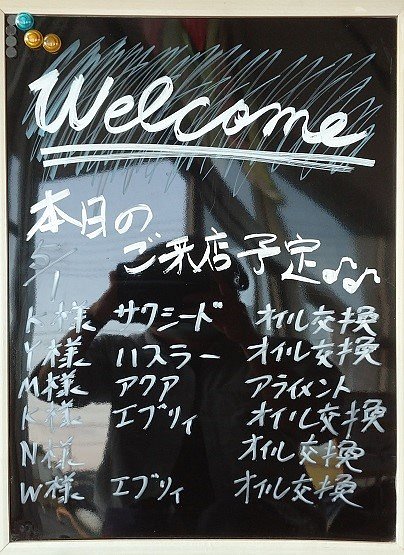 Welcome
本日の
ご来店予定♪♫
5/1
K様 サクシード オイル交換
Y様 ハスラー オイル交換
M様 アクア アライメント
K様 エブリィ オイル交換
N様 オイル交換
W様 エブリィ オイル交換